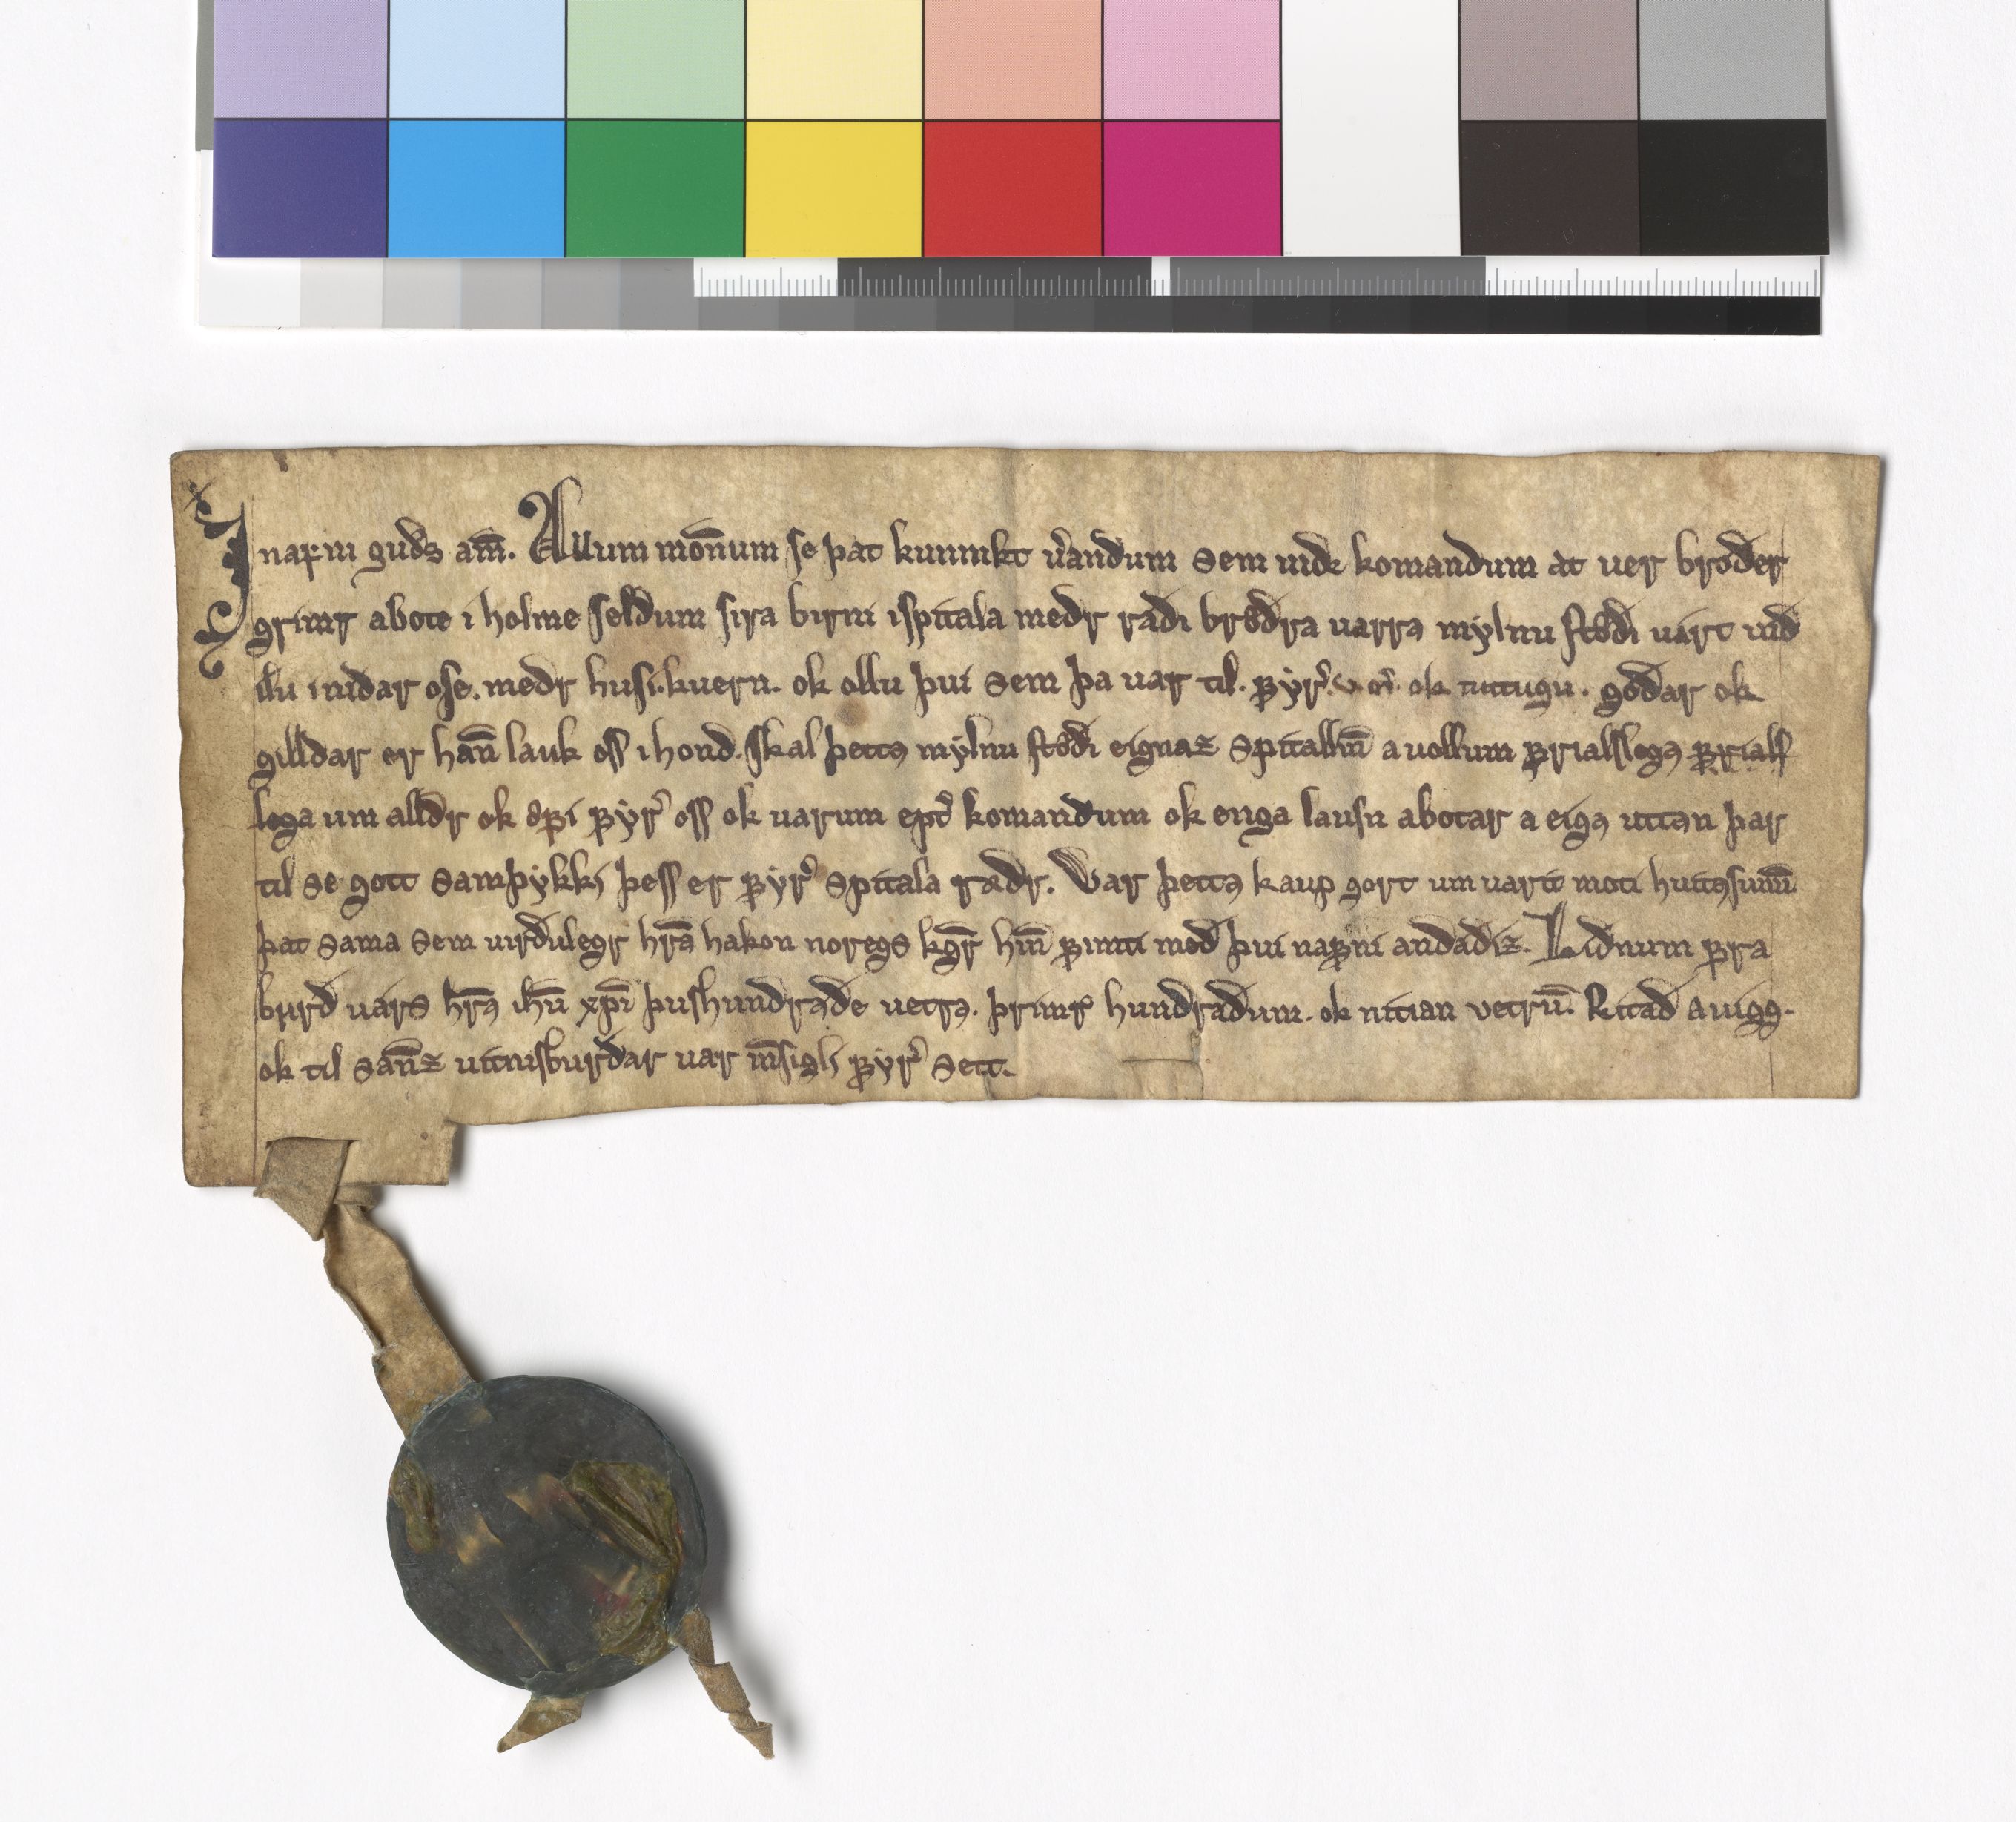 J nafni guds am̅. Allum mon̅um se þat kunnikt v̾andum sem uidr komandum at uer brøder
grimr abote i holme seldum sira birni i spitala medr radi brødra uarra mylnu stødi uart uid
ilu i nidar ose. medr husi. kuern. ok ollu þui sem þa uar til. fyr̾ ok nitugu. godar ok
gilldar er han̅ lauk oss i hond. skal þetta mylnu stødi eignaz spitallin̅ a uollum frialslega frials
lega um alldr ok øfi fyr̾ oss ok uarum ept̾ komandum ok enga lausn abotar a eiga uttan þar
til se gott samþykki þess er fyr̾ spitala rædr. Var þetta kaup gort um uarit moti huitasun̅u
þat sama sem uirdulegr hr̅a hakon noregs kgr̅ hin̅ fimti med þui nafni andadiz. Lidnum fra
burd uars hr̅a ih̅u xp̅i þushundrade uetra. þrimr hundradum. ok nitian vetru̅. Ritad a uigg.
ok til san̅z uitnisburdar uar in̅sigli fyr̾ sett.